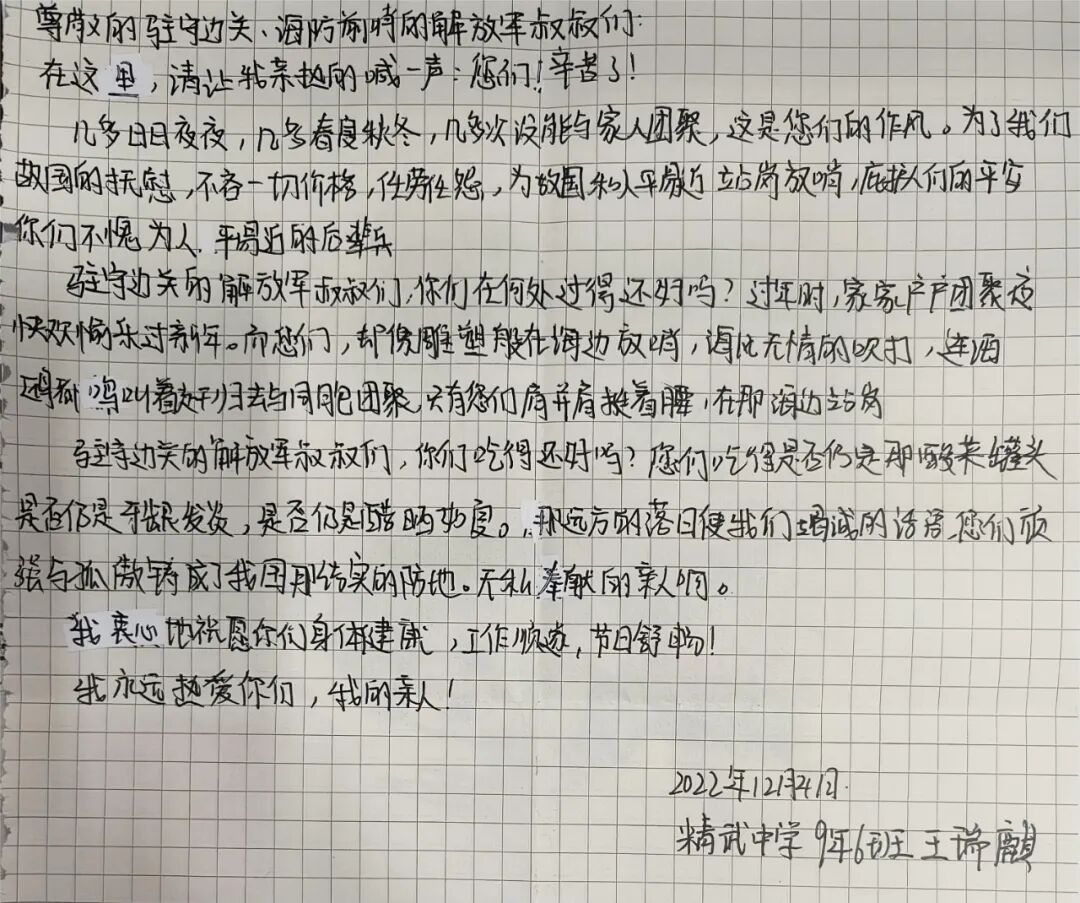 尊敬的驻守边关、海防前哨的解放军叔叔们:
在这里,请让我亲热的喊一声:您们!辛苦了!
几多日日夜夜,几多春夏秋冬,几多次没能与家人团聚,这是您们的作风。为了我们
故国的抚慰,不吝一切价格,任劳任怨,为故国和人平易近站岗放哨,庇护人们的平安
你们不愧为人 平易近的后辈兵
驻守边关的解放军叔叔们,你们在何处过得还好吗?过年时,家家户户团聚在
快欢愉乐过新年。而您们,却像雕塑般在海边放哨,海风无情的吹打,连海
鸣叫着赶归去与同胞团聚,只有您们肩并肩挺着腰,在那海边站岗
驻守边关的解放军叔叔们,你们吃得还好吗?您们吃得是否仍是那酸菜罐头
是否仍是牙龈发炎,是否仍是。那远方的落日使我们竭诚的话语 您们顽
强与孤傲铸成了我国那结实的防地。无私奉献的亲人啊。
我衷心地祝愿你们身体建康,工作顺遂,节日舒畅!
我永远热爱你们,我的亲人!
2022年12月21日
精武中学 9年6班 王瑞麒